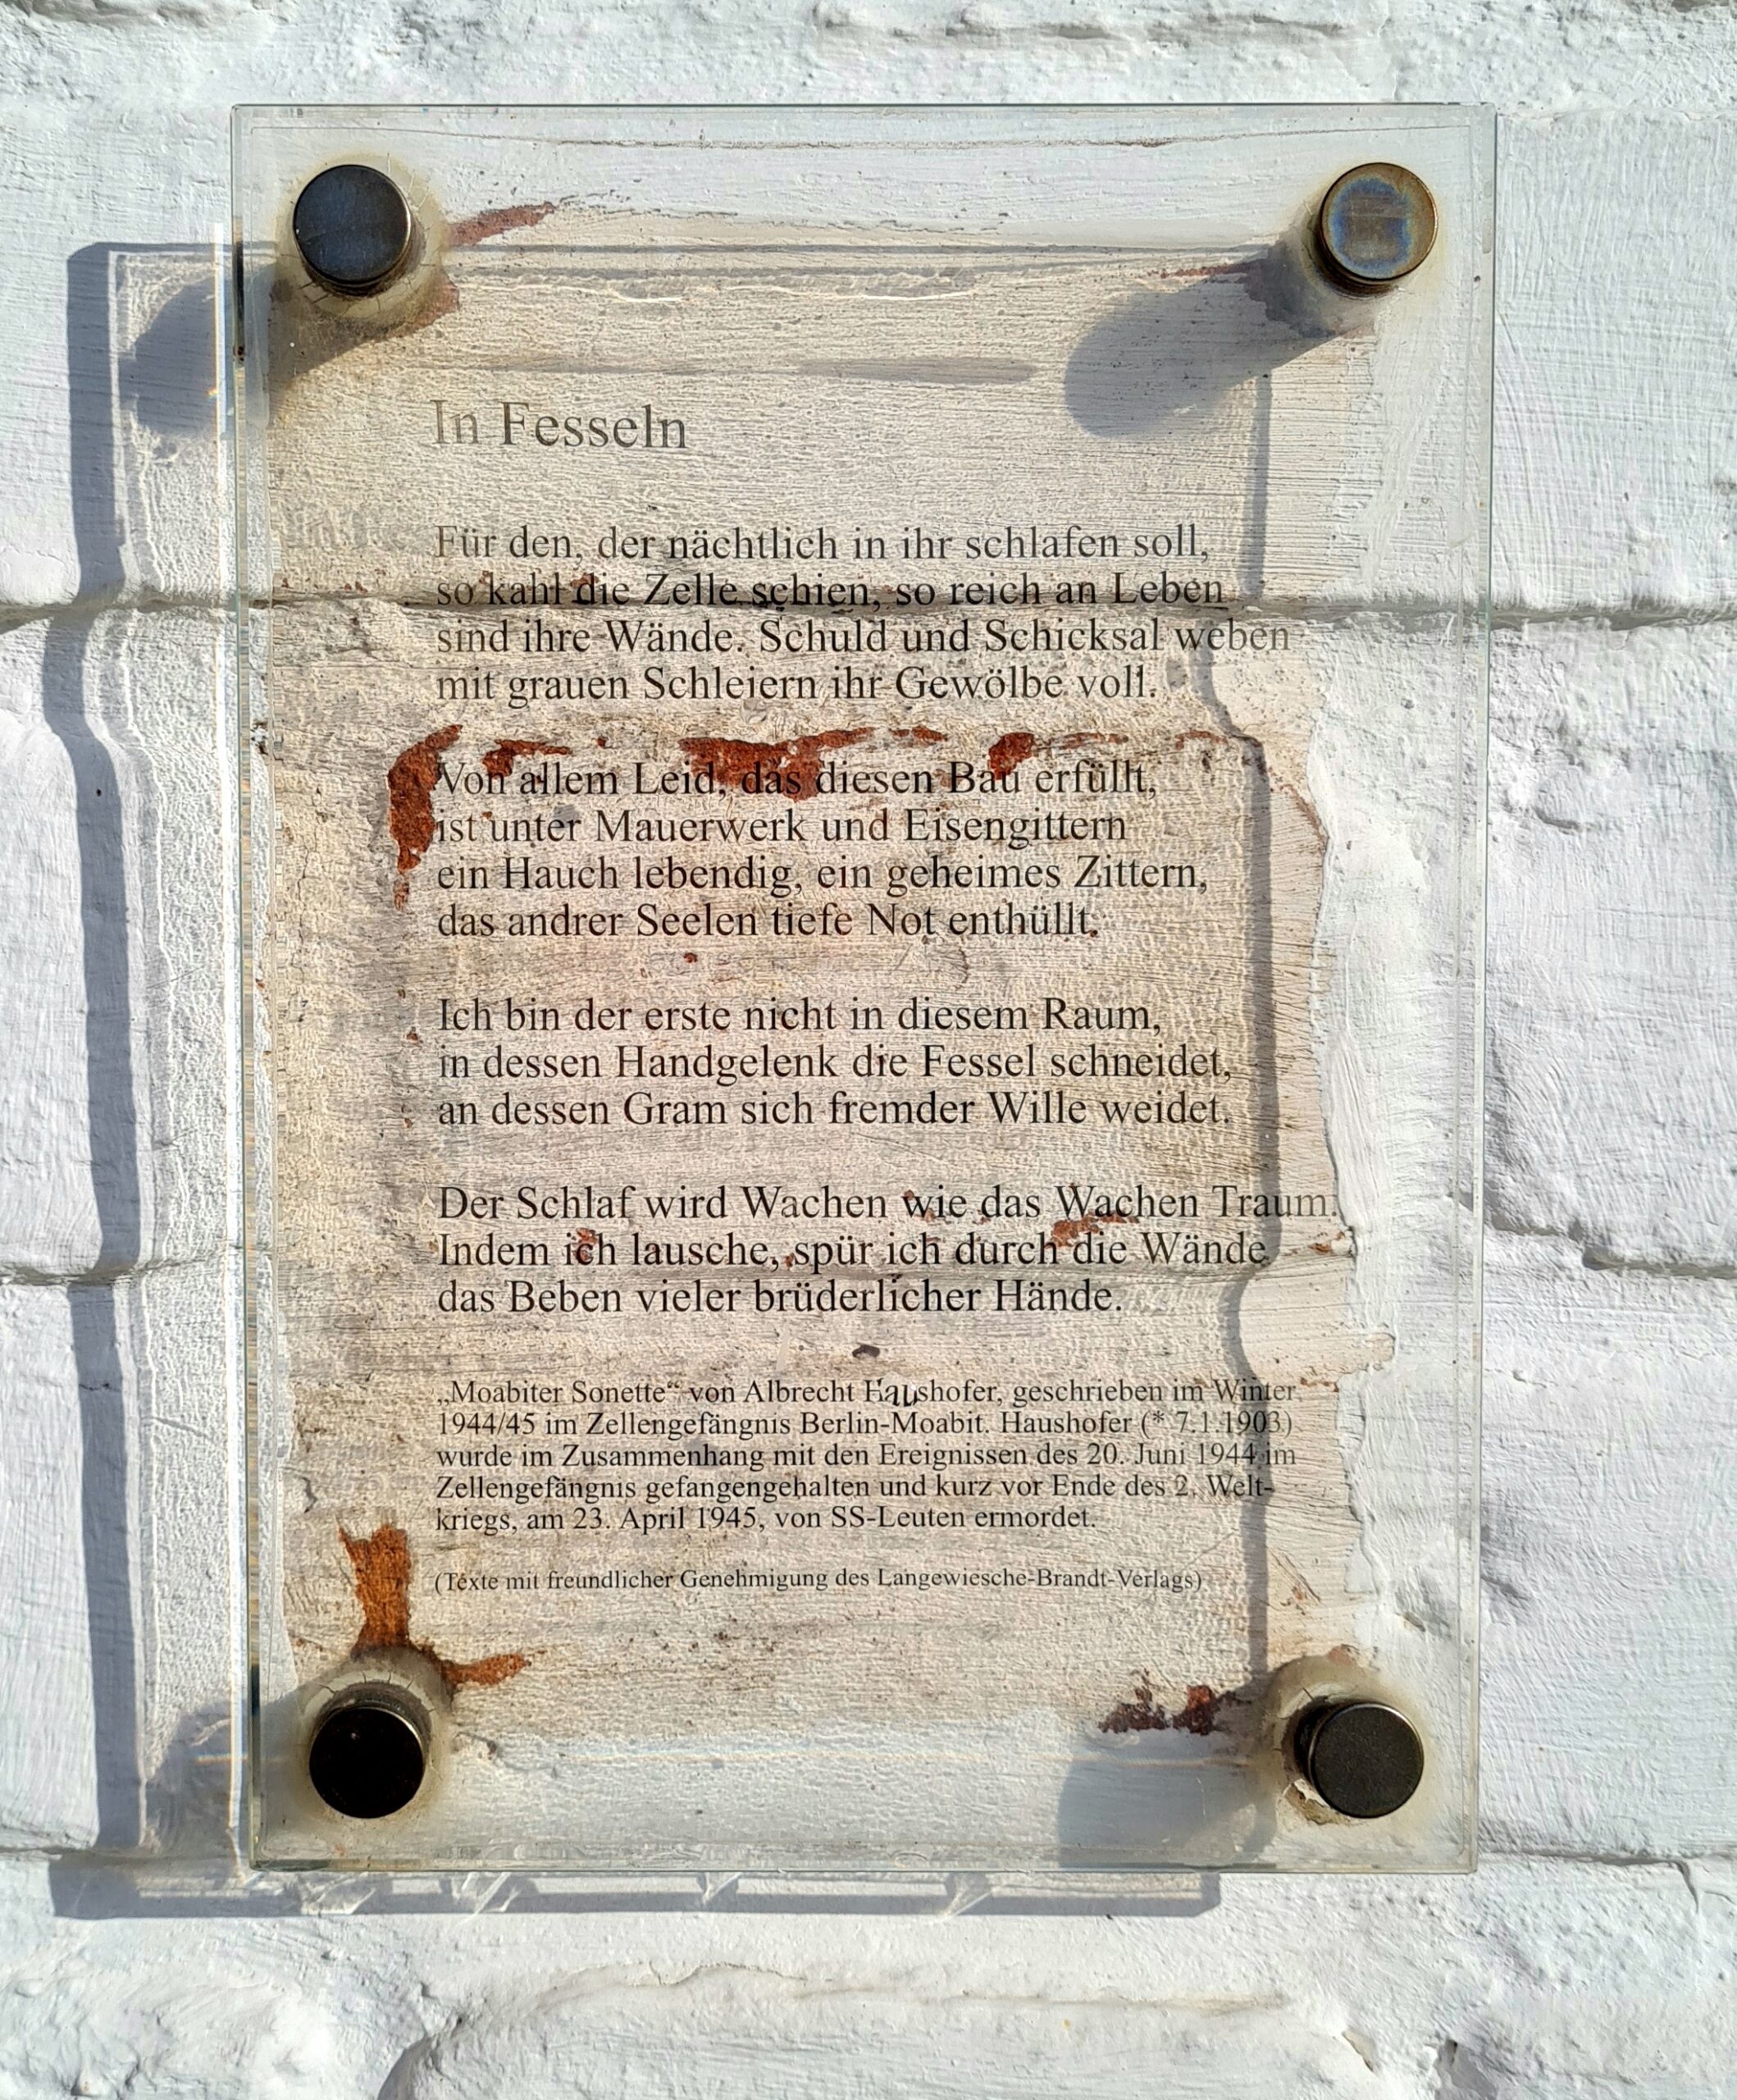 In Fesseln
Für den, der nächtlich in ihr schlafen soll,
so kahl die Zelle schien, so reich an Leben
sind ihre Wände. Schuld und Schicksal weben
mit grauen Schleiern ihr Gewölbe voll.
Von allem Leid, das diesen Bau erfüllt,
ist unter Mauerwerk und Eisengittern
ein Hauch lebendig, ein geheimes Zittern,
das andrer Seelen tiefe Not enthüllt.
Ich bin der erste nicht in diesem Raum,
in dessen Handgelenk die Fessel schneidet,
an dessen Gram sich fremder Wille weidet.
Der Schlaf wird Wachen wie das Wachen Traum.
Indem ich lausche, spür ich durch die Wände
das Beben vieler brüderlicher Hände.
„Moabiter Sonette“ von Albrecht Haushofer, geschrieben im Winter
1944/45 im Zellengefängnis Berlin-Moabit. Haushofer (* 7.1.1903)
wurde im Zusammenhang mit den Ereignissen des 20. Juni 1944 im
Zellengefängnis gefangengehalten und kurz vor Ende des 2. Welt-
kriegs, am 23. April 1945, von SS-Leuten ermordet.
(Texte mit freundlicher Genehmigung des Langewiesche-Brandt-Verlags)